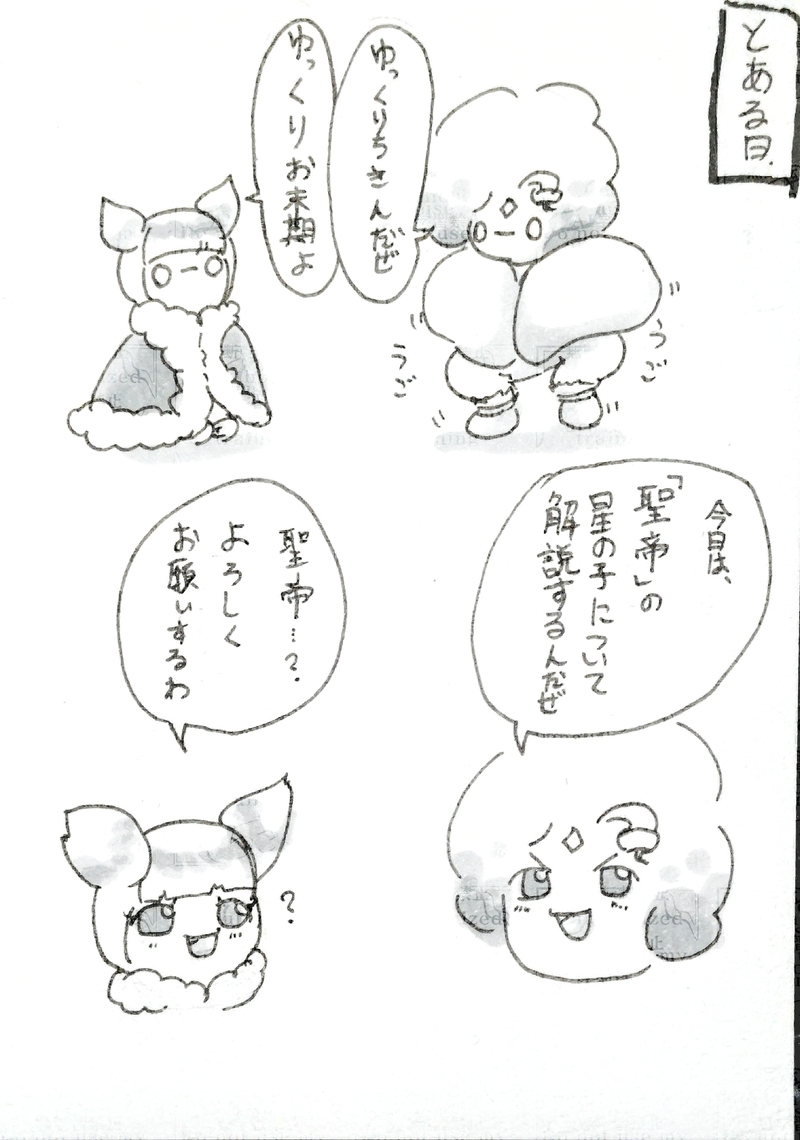 とある日.
ゆっくりちきんだぜ
ゆっくりお末期よ
うご
うご
今日は、
「聖帝」の
星の子について
解説するんだぜ
聖帝…?
よろしく
お願いするわ
?